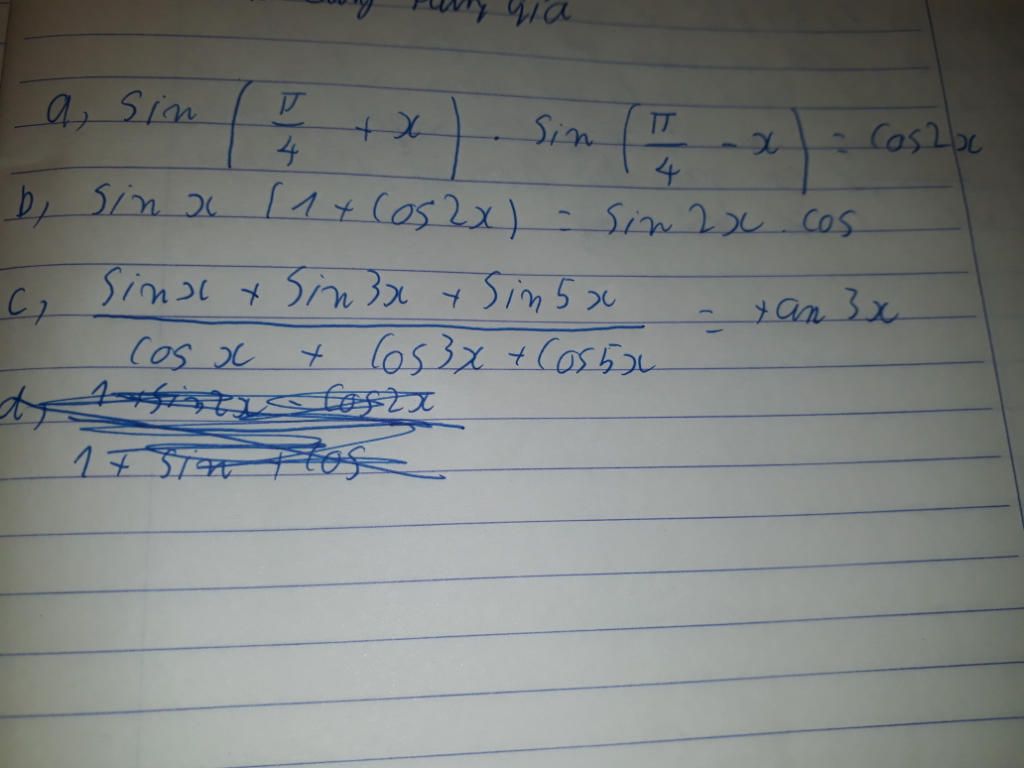 gia
a, sin(π/4 + x) . sin(π/4 - x) = cos2x
b, sin x (1 + cos2x) = sin 2x . cos
c, (sinx + sin3x + sin5x)/(cos x + cos3x + cos5x) = tan 3x
d, 1 + sin2x - cos2x
1 + sin + cos